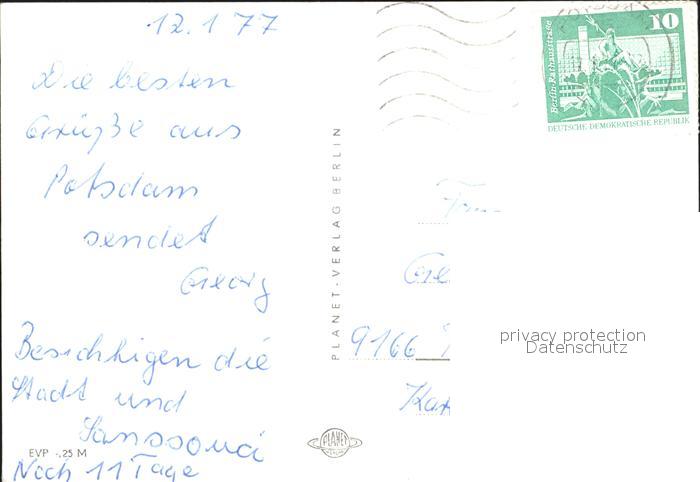 12.1 77
Die besten
Grüße aus
Potsdam
sendet
Georg
Besichtigen die
Stadt und
Sanssouci
Noch 11 Tage
EVP -.25 M
PLANET-VERLAG BERLIN
PLANET
10
Berlin-Rathausstraße
DEUTSCHE DEMOKRATISCHE REPUBLIK
9166
privacy protection
Datenschutz